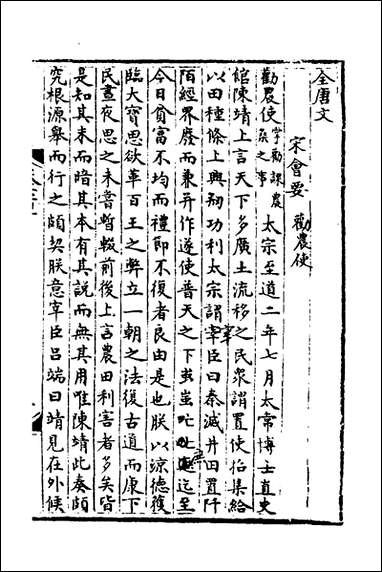 全唐文
宋會要 勸農使
勸農使掌勸課農桑之事 太宗至道二年七月太常博士直史
館陳靖上言天下多曠土流移之民衆請置使招集給
以田種條上興刱功利太宗謂宰臣曰秦滅井田置阡
陌經界廢而兼并作遂使普天之下蚩蚩迄至
今日貧富不均而禮節不復者良由是也朕以涼德獲
臨大寶思欲革百王之弊立一朝之法復古道而康下
民晝夜思之未嘗暫輟前後上言農田利害者多矣皆
是知其末而暗其本有其說而無其用唯陳靖此奏頗
究根源舉而行之頗契朕意宰臣呂端曰靖見在外候